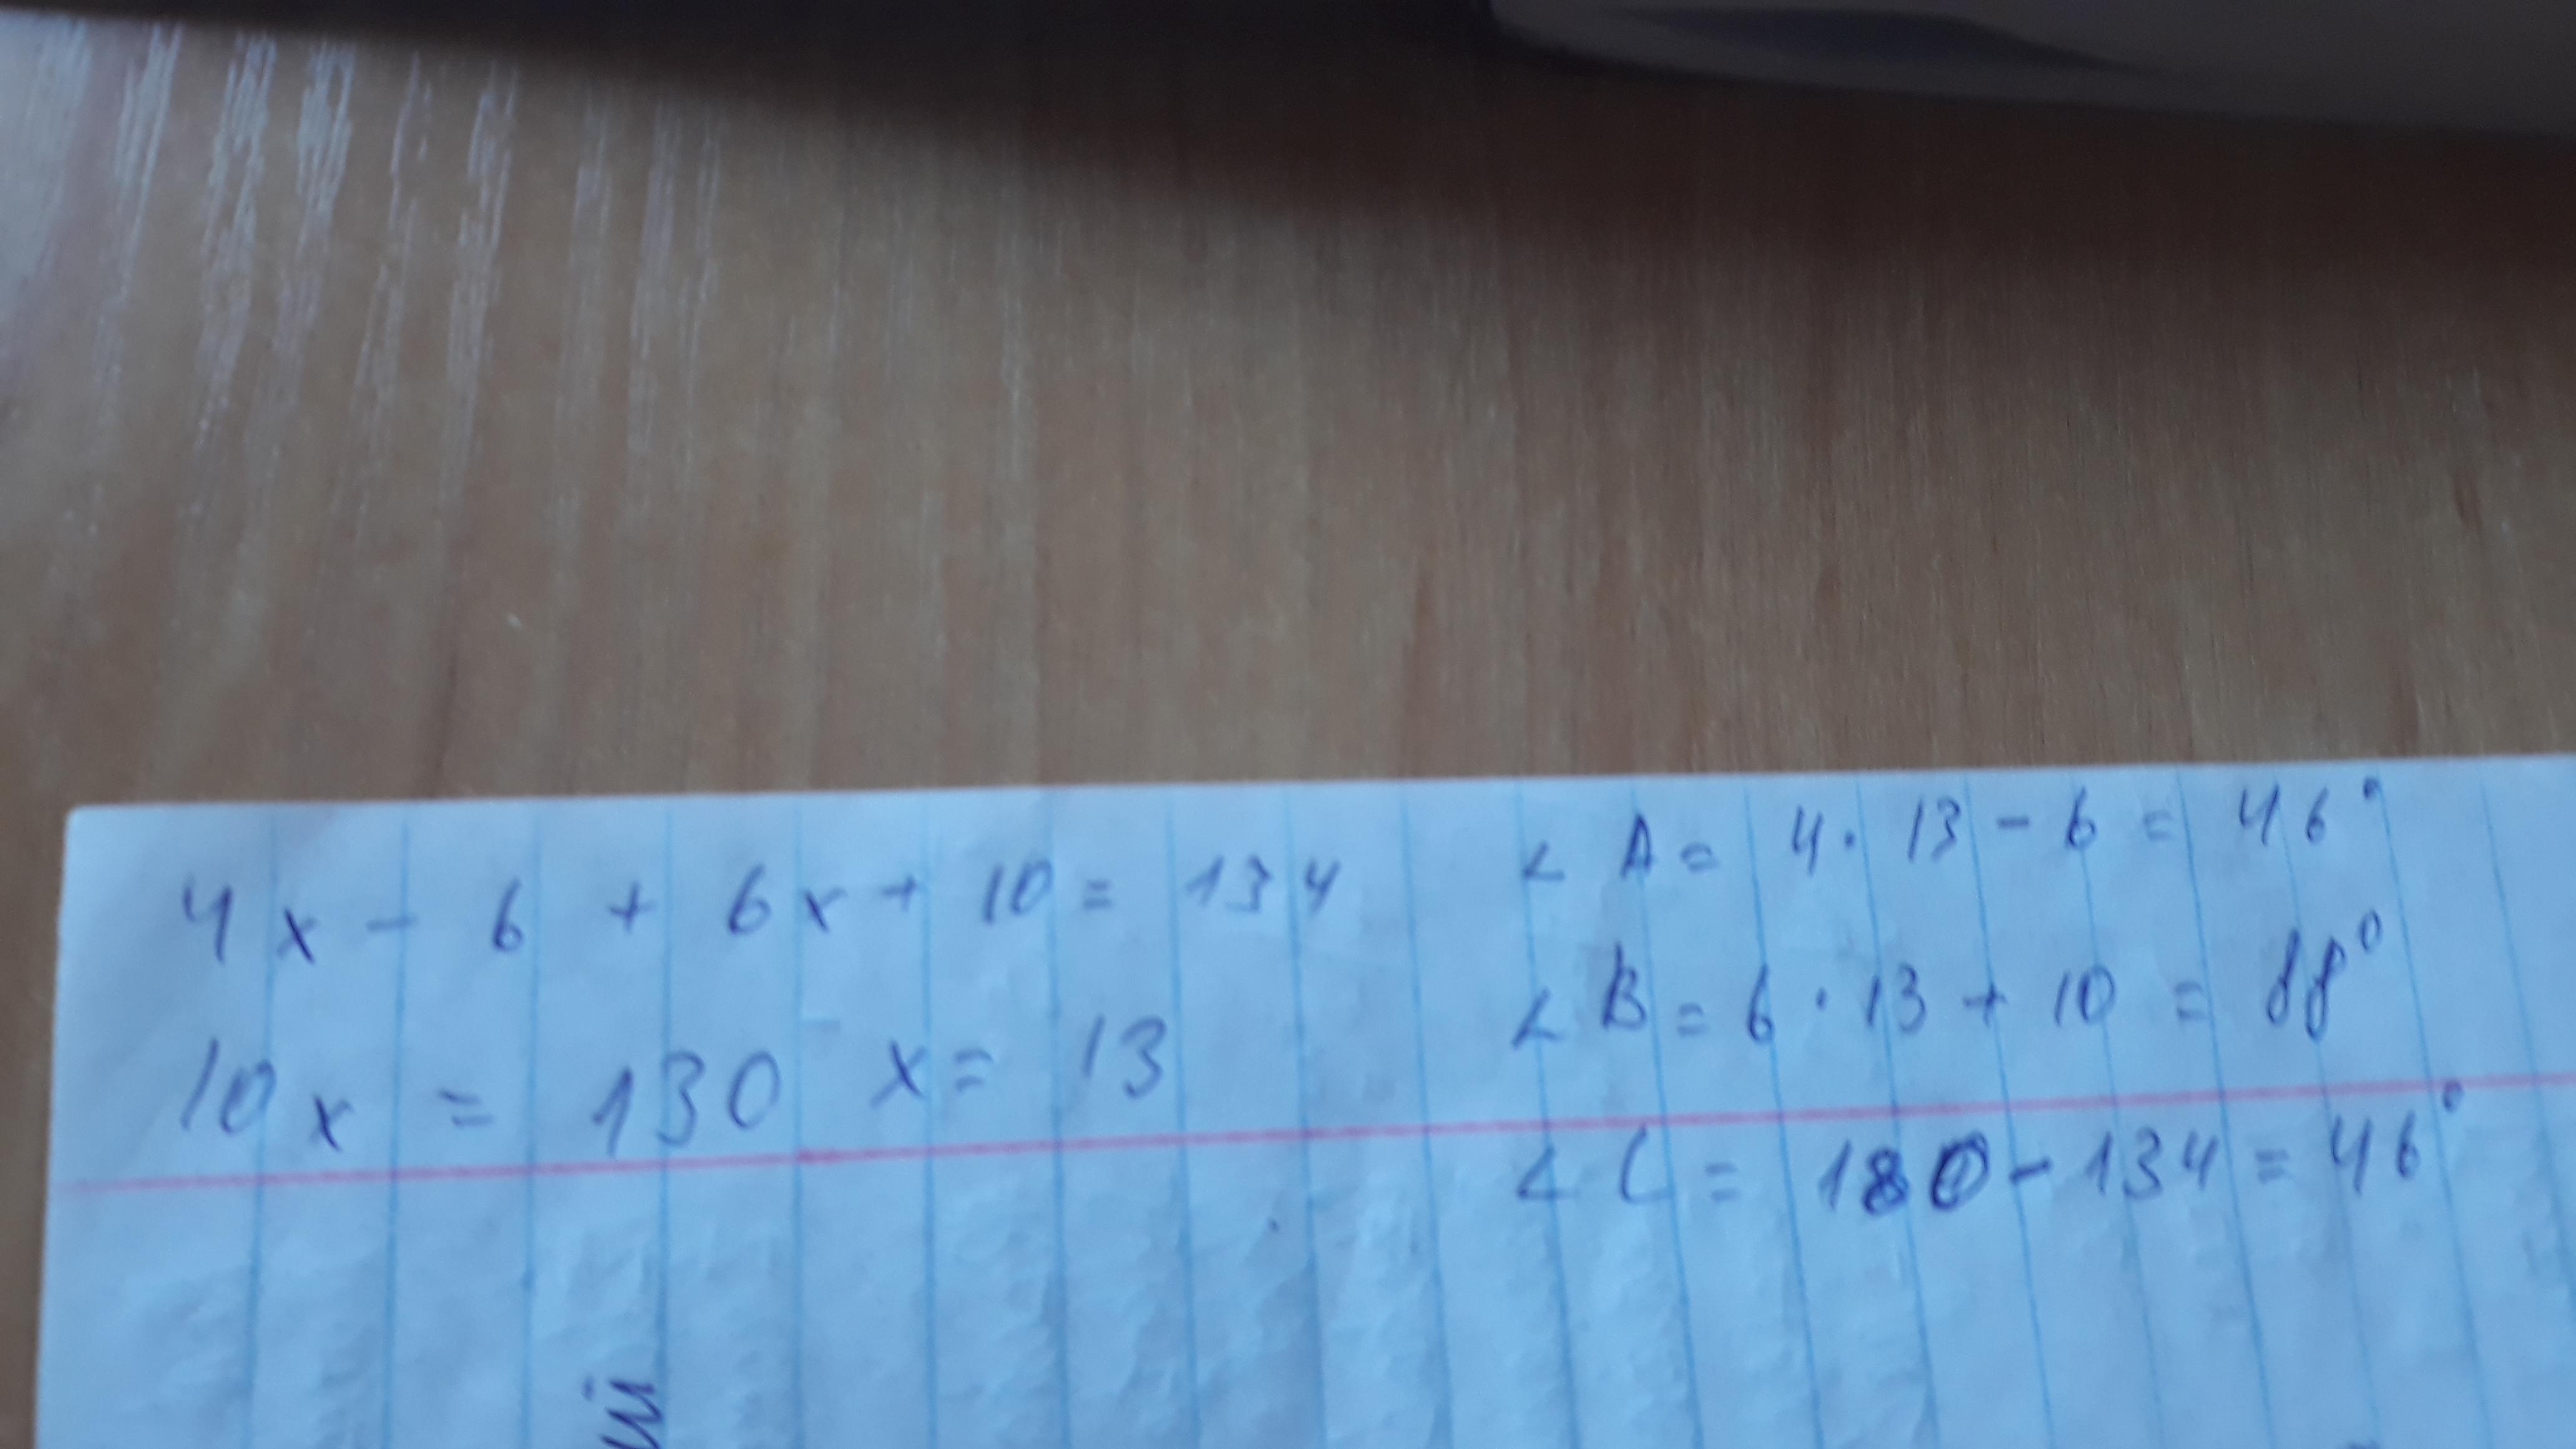 4x - 6 + 6x + 10 = 134
10x = 130 x = 13
∠A = 4·13 - 6 = 46°
∠B = 6·13 + 10 = 88°
∠C = 180 - 134 = 46°
ий